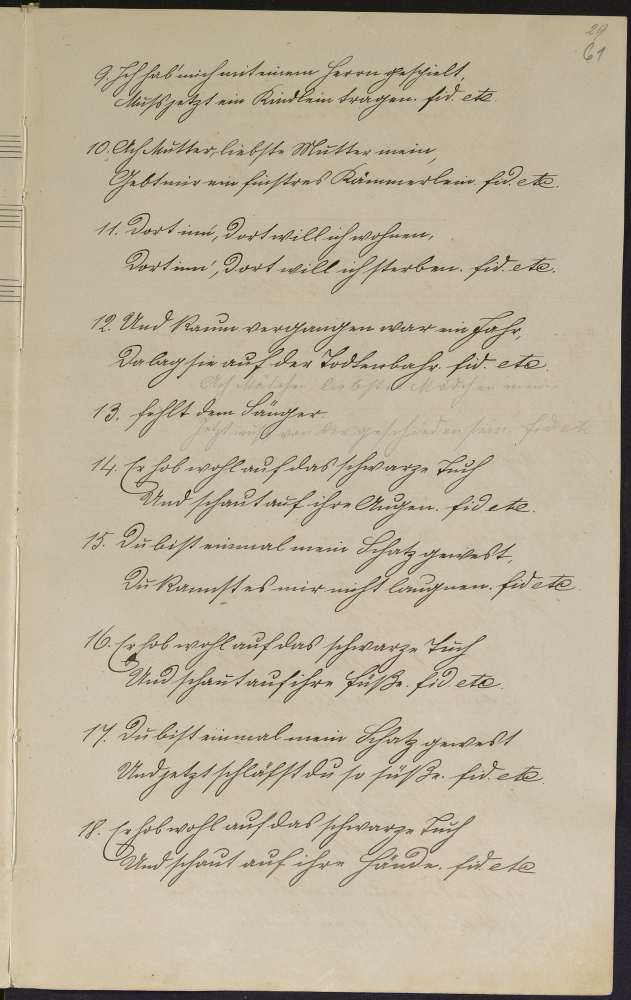 29
61
9. Ich hab' mich mit einem Herrn gespielt,
Muss jetzt ein Kindlein tragen. fid. etc.
10. Ach Mutter, liebste Mutter mein,
Gebt mir ein finstres Kämmerlein. fid. etc.
11. Dort inn', dort will ich wohnen,
Dort inn', dort will ich sterben. fid. etc.
12. Und kaum vergangen war ein Jahr,
Da lag sie auf der Todtenbahr. fid. etc.
Ach Mädchen, liebstes Mädchen mein
13. fehlt dem Sänger.
Jetzt muß ich von dir geschieden sein. fid etc
14. Er hob wohl auf das schwarze Tuch
Und schaut auf ihre Augen. fid etc.
15. Du bist einmal mein Schatz gewest,
Du kannst es mir nicht laugnen. fid etc.
16. Er hob wohl auf das schwarze Tuch
Und schaut auf ihre Füße. fid etc.
17. Du bist einmal mein Schatz gewest
Und jetzt schläfst du so süße. fid. etc.
18. Er hob wohl auf das schwarze Tuch
Und schaut auf ihre Hände. fid. etc